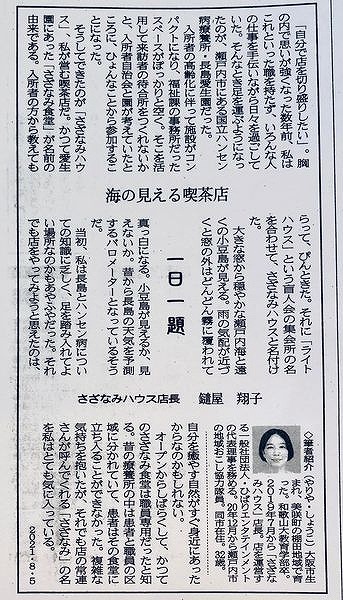 海の見える喫茶店
一日一題
さざなみハウス店長　鑓屋　翔子
「自分で店を切り盛りしたい」。胸
の内で思いが強くなった数年前、私は
これといった職を持たず、いろんな人
の仕事を手伝いながら日々を過ごして
いた。そんなとき足を運ぶようになっ
たのが、瀬戸内市にある国立ハンセン
病療養所・長島愛生園だった。
入所者の高齢化に伴って施設がコン
パクトになり、福祉課の事務所だった
スペースがぽっかりと空く。そこを活
用して来訪者の待合所をつくれないか
と、入所者自治会と園が考えていたと
ころに、ひょんなことから参加するこ
とになった。
そうしてできたのが「さざなみハウ
ス」、私が営む喫茶店だ。かつて愛生
園にあった「さざなみ食堂」が名前の
由来である。入所者の方から教えても
らって、ぴんときた。それに「ライト
ハウス」という盲人会の集会所の名
を合わせて、さざなみハウスと名付け
た。
大きな窓から穏やかな瀬戸内海と遠
くの小豆島が見える。雨の気配が近づ
くと窓の外はどんどん霧に覆われて
真っ白になる。小豆島が見えるか、見
えないか。昔から長島の天気を予測
するバロメーターとなっているそう
だ。
当初、私は長島とハンセン病につい
ての知識に乏しく、足を踏み入れてよ
い場所なのかもあやふやだった。それ
でも店をやってみようと思えたのは、
自分を癒やす自然がすぐ身近にあった
からなのかもしれない。
オープンからしばらくして、かつて
のさざなみ食堂は職員専用だったと知
る。昔の療養所の中は患者と職員の区
域に分かれていて、患者はその食堂に
立ち入ることができなかった。複雑な
気持ちを抱いたが、それでも店の常連
さんが呼んでくれる「さざなみ」の名
を私はとても気に入っている。
2021・8・5
◇筆者紹介
（やりや・しょうこ）大阪市生
まれ、美咲町の棚田地域で育
った。和歌山大教育学部卒。
2019年7月から「さざな
みハウス」店長。店を運営す
る一般社団法人・ひばりエンタテインメント
の代表理事を務める。20年12月から瀬戸内市
の地域おこし協力隊員。同市在住。32歳。